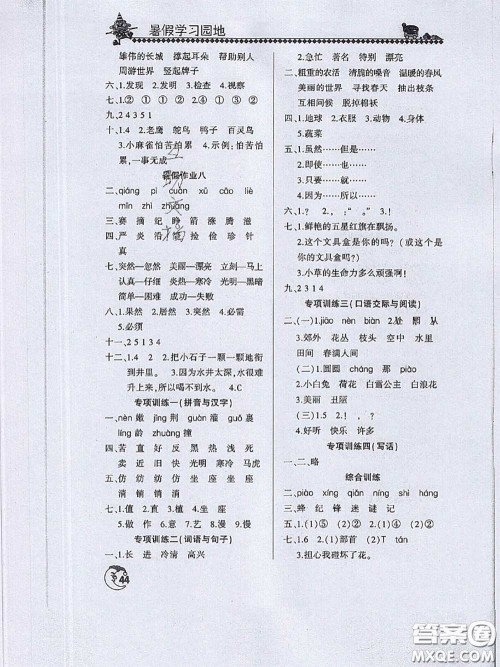 暑假学习园地
雄伟的长城 撑起耳朵 帮助别人
周游世界 竖起牌子
六、1.发现 2.发明 3.检查 4.视察
七、1.② ① ① ② 2.④ ① ③ ②
九、2 4 3 5 1
十一、1.4 2.老鹰 鸵鸟 鸭子 百灵鸟
3.小麻雀怕苦怕累 4.示例:怕苦怕
累,一事无成
暑假作业八
二、qiáng pì cuàn xū cāo liè
mǐn zhī zhuāng
三、赛 摘 纪 睁 箭 涨 腾 滋
四、严 炎 沿 捡 俭 珍 针
真
七、突然—忽然 美丽—漂亮 立刻—马上
认真—仔细 炎热—寒冷 光明—黑暗
简单—困难 成功—失败
八、1.果然 2.居然 3.突然 4.必需
5.必须
十一、2 5 1 3 4
十二、1.4 2.把小石子一颗一颗地衔
到井里。 3.因为井很深,水很难
升上来,所以喝不到水。 4.C
专项训练一(拼音与汉字)
一、nèn 嫩 jīng 荆 guàn 灌 guǒ 裹
líng 龄 zhuàng 撞
四、苦 直 好 反 黑 热 浅 死
卖 近 旧 快 光明 寒冷 马虎
五、仿 纺 纺 仿 坐 座 座 坐
清 销 销 消
六、1.向 2.直 3.值 4.坐 座
5.做 作 6.意 7.艺 8.漫 9.慢
专项训练二(词语与句子)
一、1.长 进 冷清 高兴
44
2.急忙 著名 特别 漂亮
二、粗重的农活 清脆的嗓音 温暖的春风
美丽的世界 寻找春天 抽出枝条
互相问候 脱掉棉袄
四、1.地球 2.衣服 3.动物 4.身体
5.蔬菜
五、1.虽然……但是……
2.即使……也……
3.只要……就……
4.因为……所以……
六、1.? 2.,: “。”3.!
七、1.鲜艳的五星红旗在飘扬。
2.这个文具盒是你的吗?(或难道
你的文具盒是这个吗?)
3.小草的生命力多么顽强啊!
九、2 3 1 4
专项训练三(口语交际与阅读)
二、(一)1.jiāo nèn biàn 2.处 飘
3.郊外 丛 丛 枝头 草地 水里
田间 春满人间
(二)1.圆圆 cháng nà piàn
2.小白兔 荷花 白雪公主 白胖娃娃
3.美丽 丑陋
(三)1.5 2., , ? !
4.好听 快乐 许多
专项训练四(写话)
一、二、略
综合训练
二、piào xīng qiān níng shì háng
三、蜂 纪 锋 迷 谜 记
五、1.(5) (2)② 2.(1)② (2)T tán
3.担心我碰坏了花。
答案圈
MXQE.COM